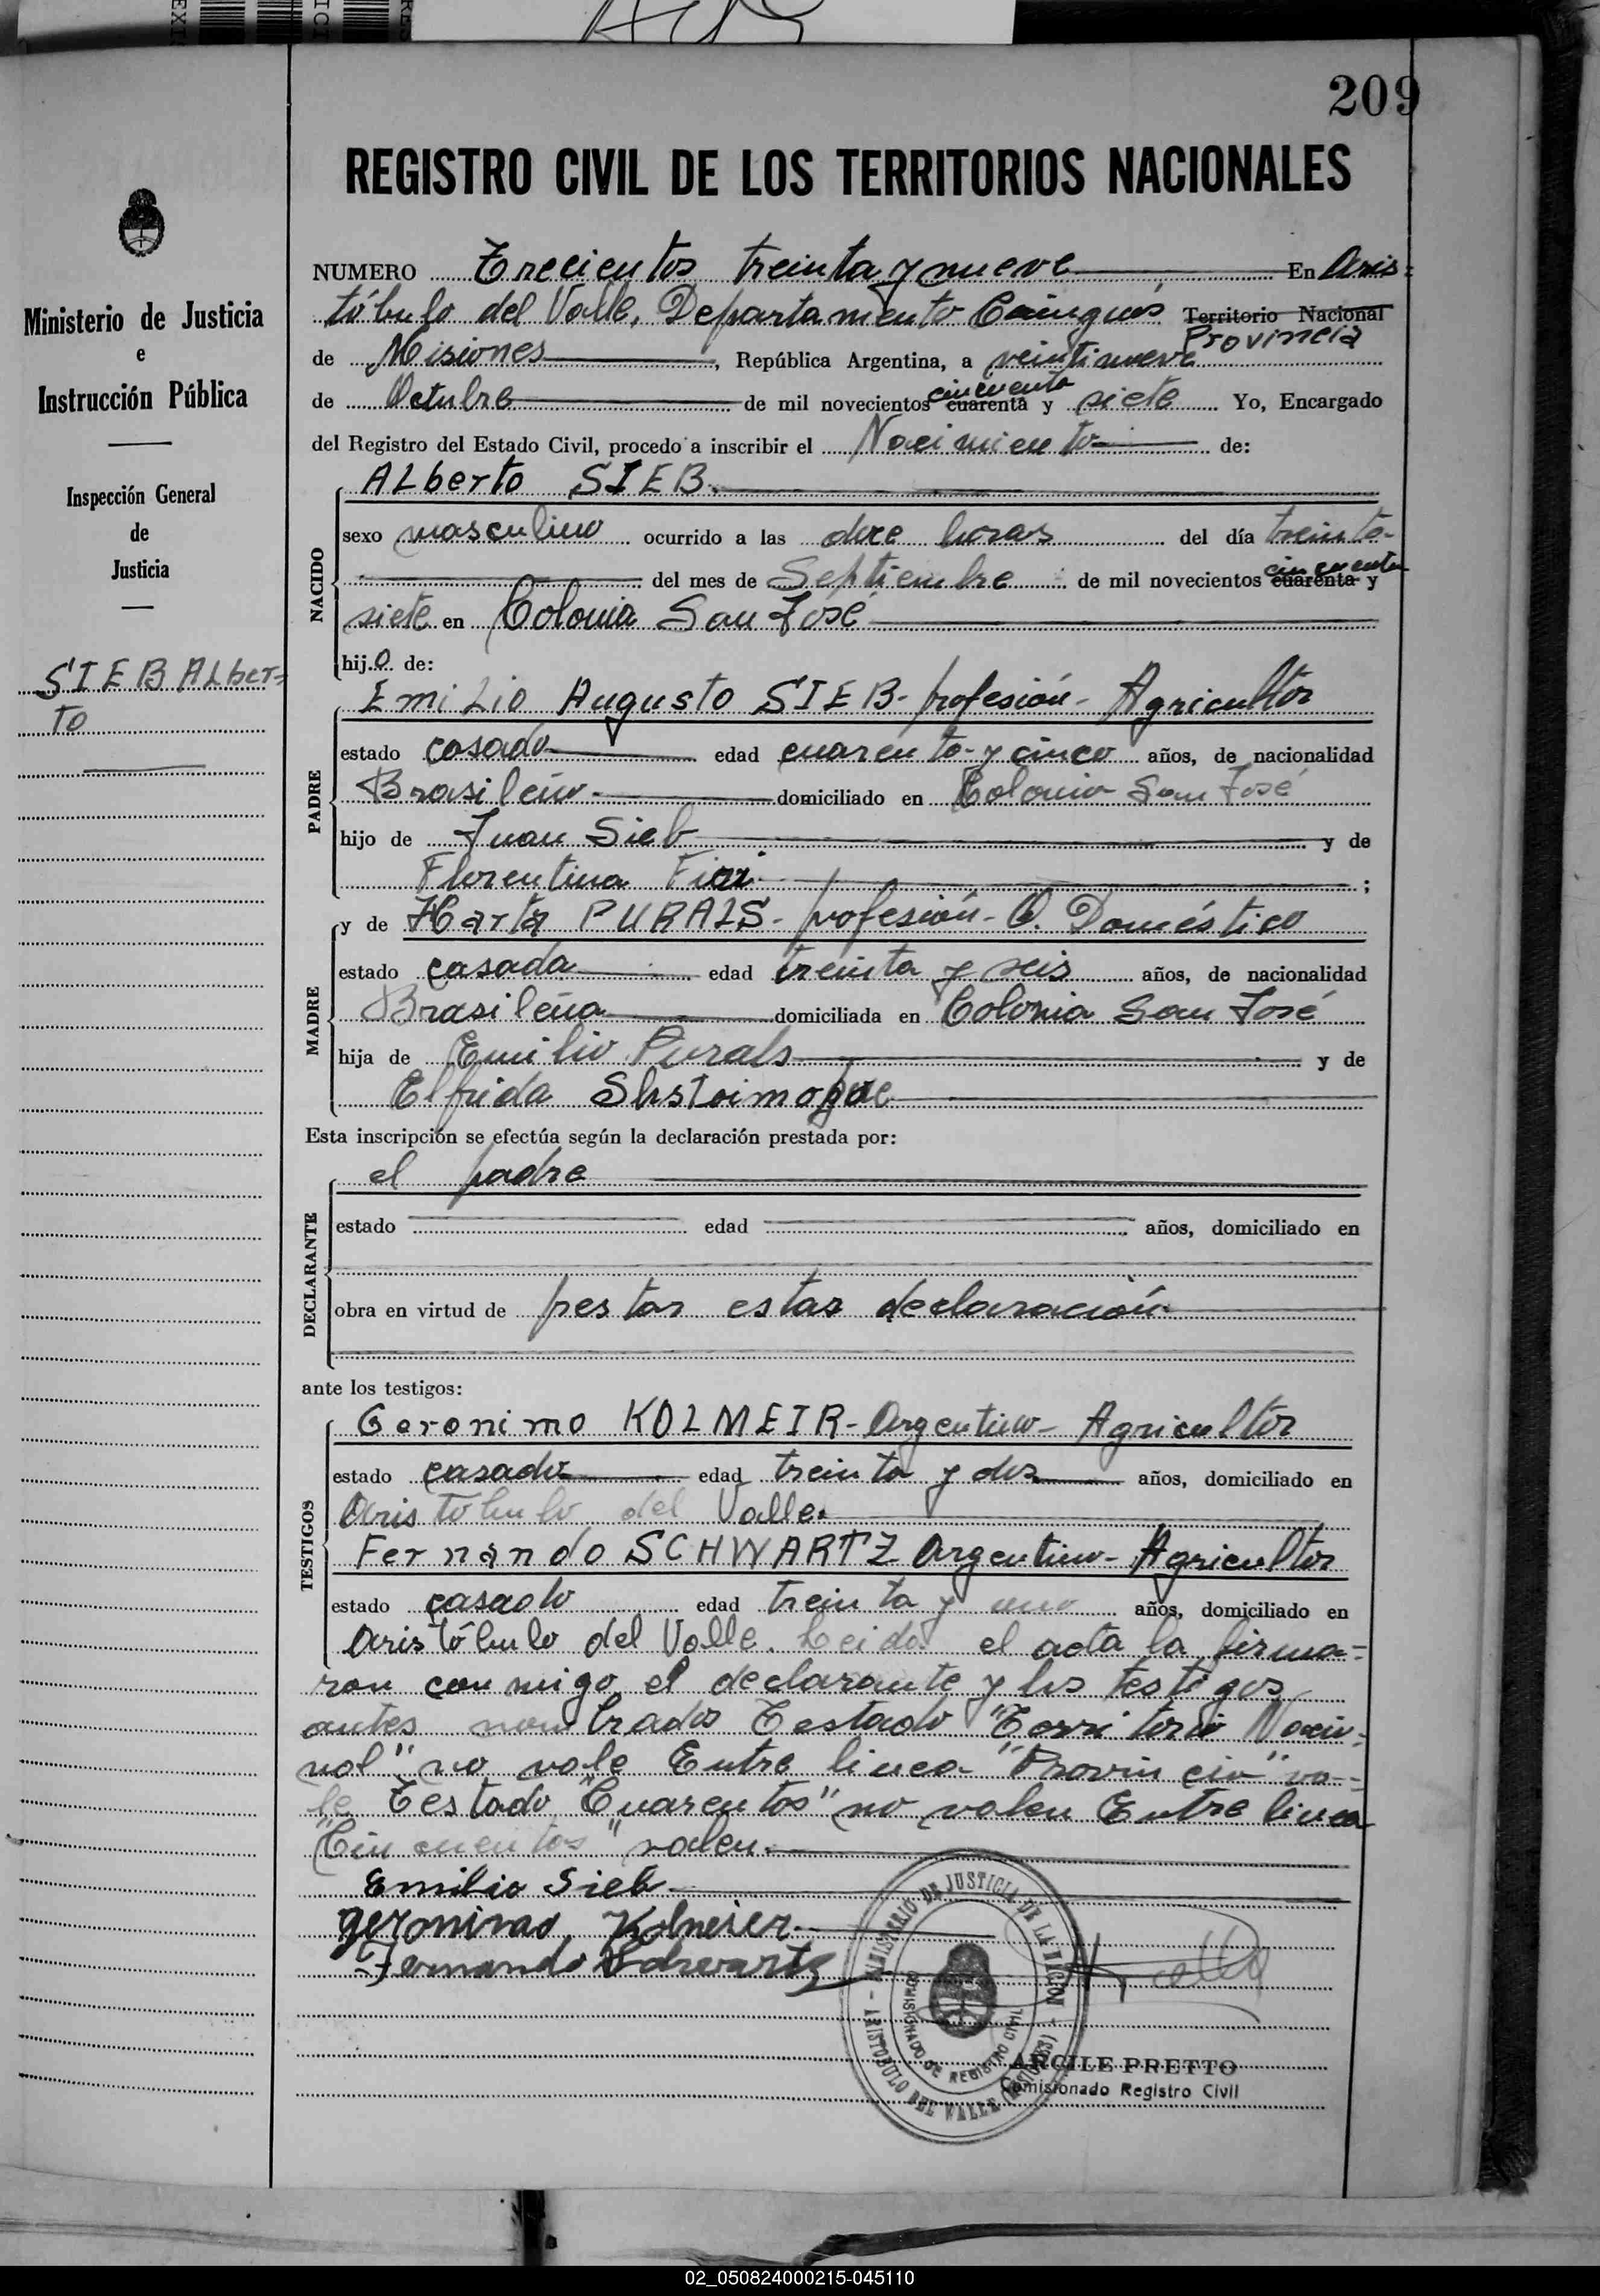 209
REGISTRO CIVIL DE LOS TERRITORIOS NACIONALES
Ministerio de Justicia
e
Instrucción Pública
Inspección General
de
Justicia
SIEB ALber=
to
NUMERO Trecientos treinta y nueve En Aris=
tóbulo del Valle, Departamento Cainguás Territorio Nacional
Provincia
de Misiones, República Argentina, a veintinueve
de Octubre de mil novecientos cuarenta y siete Yo, Encargado
cincuenta
del Registro del Estado Civil, procedo a inscribir el Nacimiento de:
NACIDO
ALberto SIEB.
sexo masculino ocurrido a las doce horas del día treinta-
del mes de Septiembre de mil novecientos cuarenta y
cincuenta
siete en Colonia San José
hijo de:
PADRE
EmiLio Augusto SIEB- profesión- Agricultor
estado casado edad cuarenta y cinco años, de nacionalidad
Brasileño- domiciliado en Colonia San José
hijo de Juan Sieb y de
Florentina ;
MADRE
y de Harta PURALS- profesión- Q. Doméstico
estado casada edad treinta y seis años, de nacionalidad
Brasileña domiciliada en Colonia San José
hija de Emilio Purals y de
Elfrida
Esta inscripción se efectúa según la declaración prestada por:
DECLARANTE
el padre
estado edad años, domiciliado en
obra en virtud de prestar estar declaración
ante los testigos:
TESTIGOS
Geronimo KOLMEIR- Argentino- Agricultor
estado casado edad treinta y dos años, domiciliado en
Aristóbulo del Valle.
Fernando SCHWARTZ Argentino- Agricultor
estado casado edad treinta y uno años, domiciliado en
Aristóbulo del Valle. Leida el acta la firma=
ron conmigo el declarante y los testigos
antes nombrados Testado "Territorio Nacio=
nal" no vale Entre linea "Provincia" va=
le Testado "Cuarentas" no valen Entre linea
"Cincuentas" valen.
Emilio Sieb
geronimo Kolmeier
Fernando Schwartz
MINISTERIO DE JUSTICIA DE LA NACION
COMISIONADO DE REGISTRO CIVIL
ARISTOBULO DEL VALLE (MISIONES)
ARCILE PRETTO
Comisionado Registro Civil
02_050824000215-045110